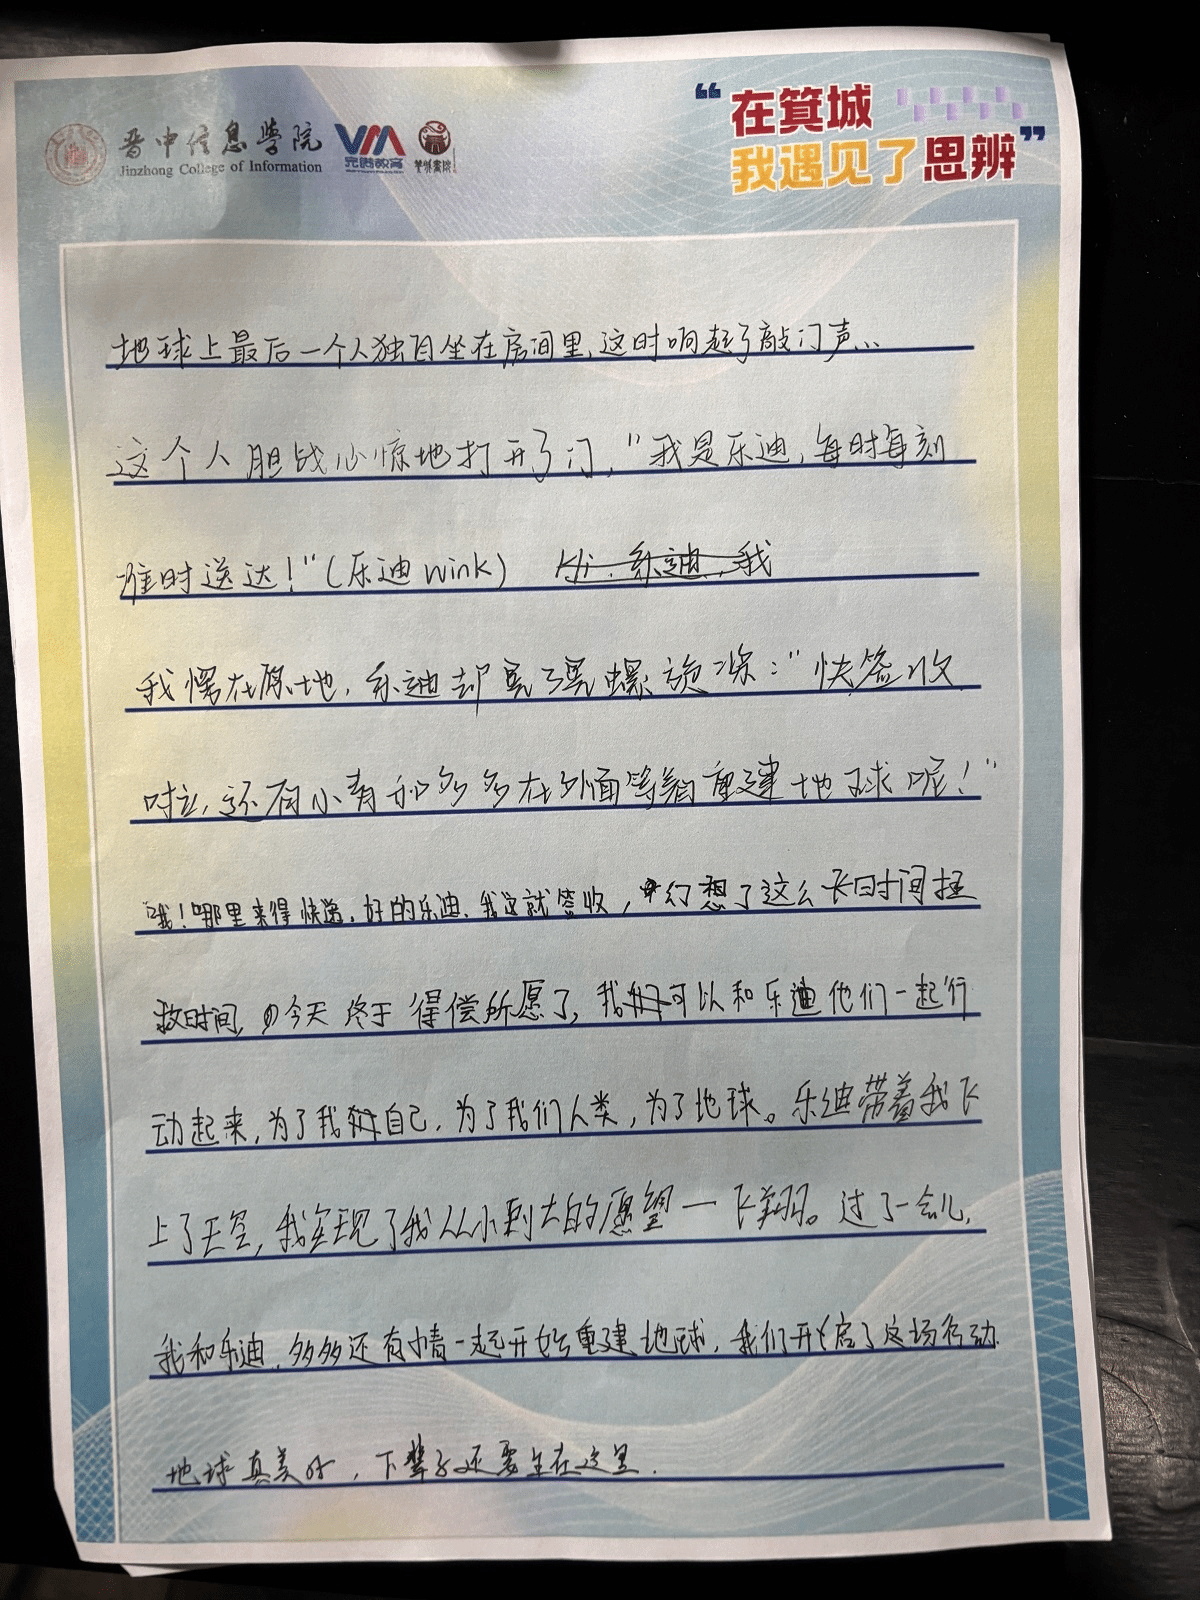 晋中信息学院
Jinzhong College of Information
VM
完美教育
箕城书院
“在箕城
我遇见了思辨”
地球上最后一个人独自坐在房间里,这时响起了敲门声…
这个人胆战心惊地打开了门,“我是乐迪,每时每刻
准时送达!”(乐迪wink) Hi.乐迪,我
我愣在原地,乐迪却晃了晃螺旋桨:“快签收
啦,还有小青和多多在外面等着重建地球呢!”
“我!哪里来得快递,好的乐迪,我这就签收,幻想了这么长时间拯
救时间,今天终于得偿所愿了,我们可以和乐迪他们一起行
动起来,为了我们自己,为了我们人类,为了地球。乐迪带着我飞
上了天空,我实现了我从小到大的愿望一飞翔。过了一会儿,
我和乐迪,多多还有小青一起开始重建地球,我们开启了这场行动.
地球真美好,下辈子还要生在这里.